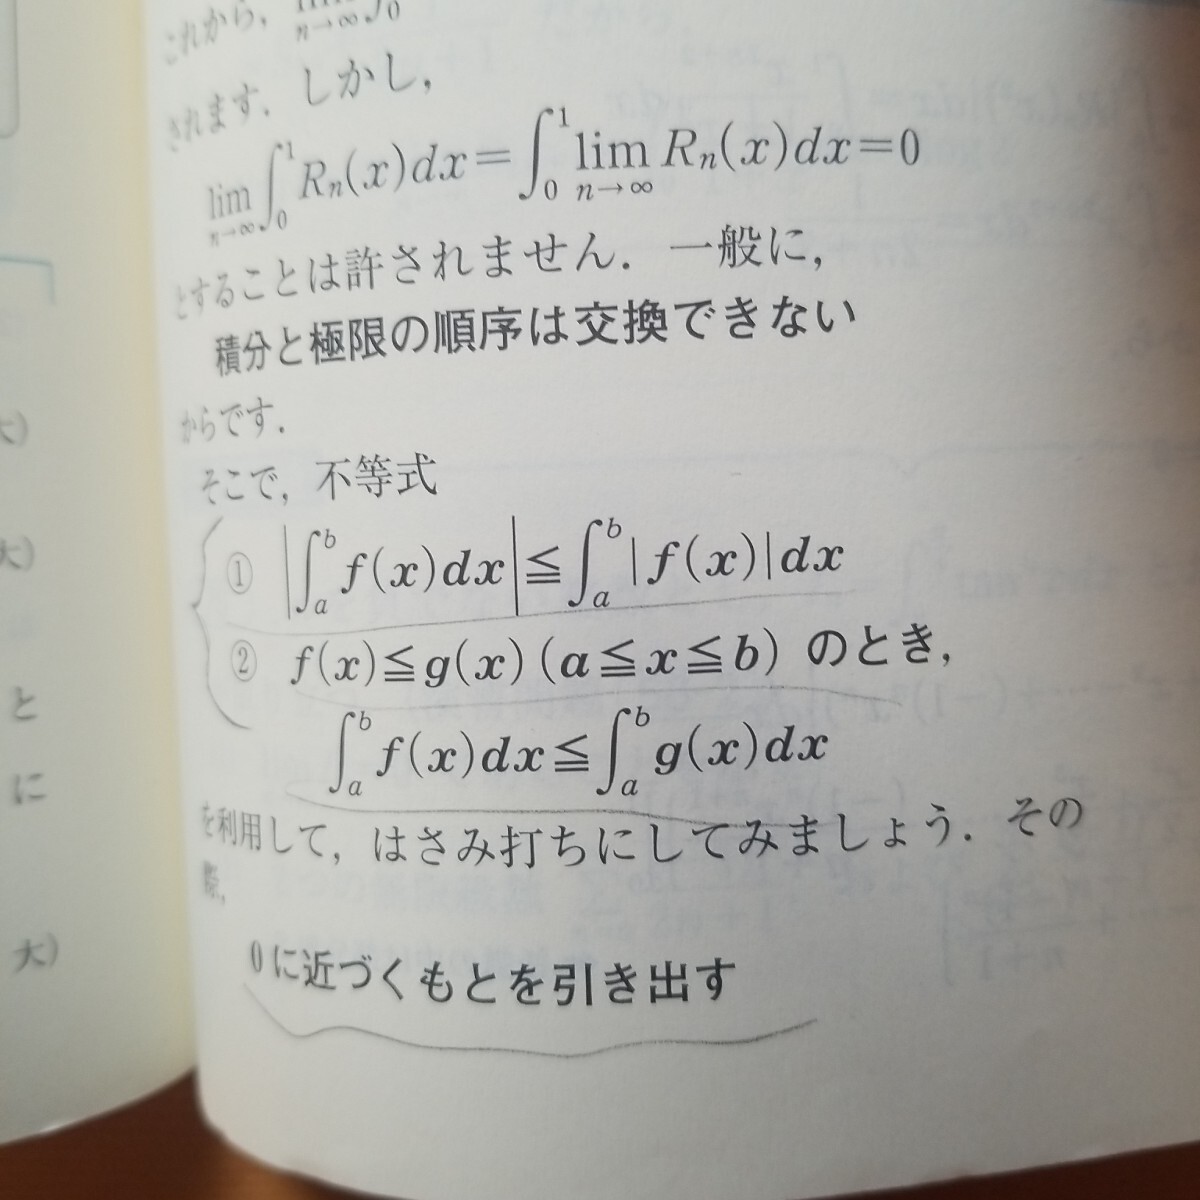 これから, lim n→∞ ∫₀
されます. しかし,
lim n→∞ ∫₀¹ Rₙ(x)dx=∫₀¹ lim n→∞ Rₙ(x)dx=0
とすることは許されません. 一般に,
積分と極限の順序は交換できない
からです.
そこで, 不等式
① |∫ₐᵇ f(x)dx|≦∫ₐᵇ |f(x)|dx
② f(x)≦g(x) (a≦x≦b) のとき,
∫ₐᵇ f(x)dx≦∫ₐᵇ g(x)dx
を利用して, はさみ打ちにしてみましょう. その
際,
0に近づくもとを引き出す
大)
大)
と
に
大)